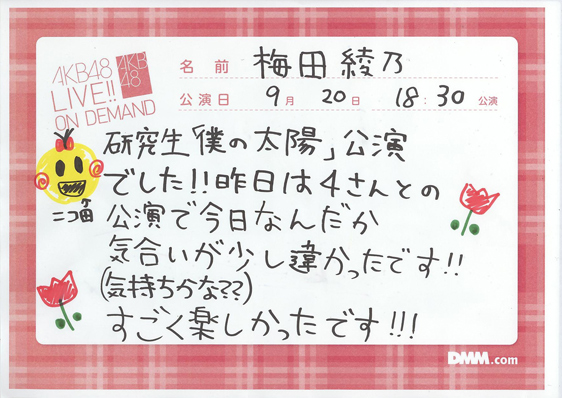 AKB48
LIVE!!
ON DEMAND
AKB
48
名前 梅田綾乃
公演日 9月 20日 18:30 公演
研究生「僕の太陽」公演
でした!!昨日は4さんとの
公演で今日なんだか
気合いが少し違かったです!!
(気持ちかな??)
すごく楽しかったです!!!
DMM.com